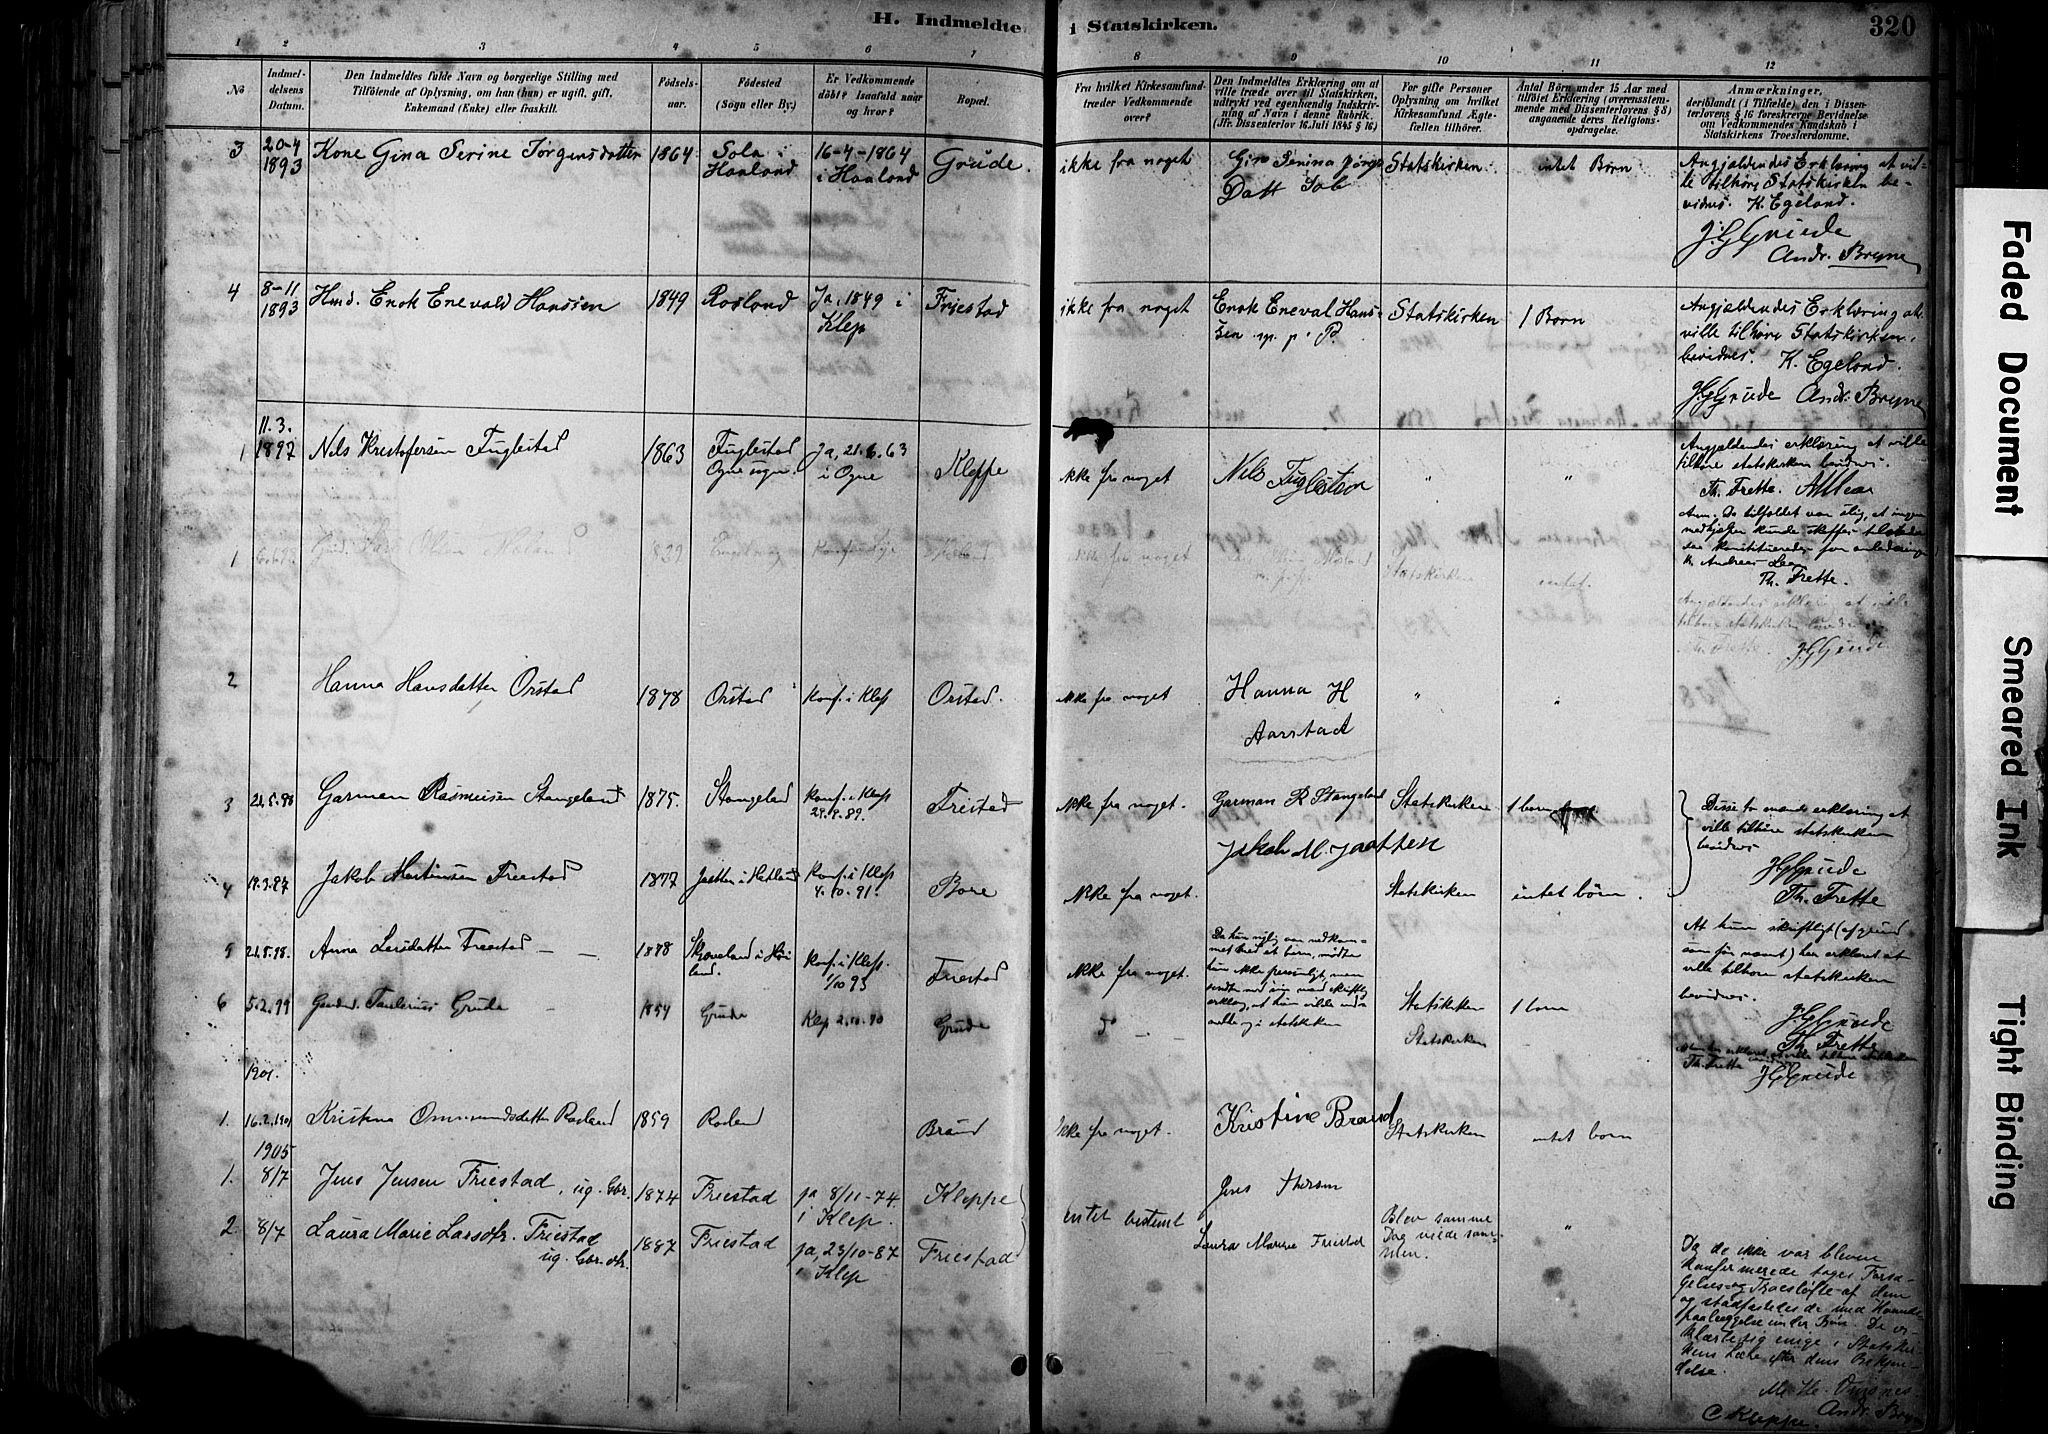 H. Indmeldte
i Statskirken.
320
1 2 3 4 5 6 7 8 9 10 11 12
No
Indmel-
delsens
Datum.
Den Indmeldtes fulde Navn og borgerlige Stilling med
Tilföiende af Oplysning, om han (hun) er ugift, gift,
Enkemand (Enke) eller fraskilt.
Födsels-
aar.
Födested
(Sogn eller By.)
Er Vedkommende
döbt? Isaafald naar
og hvor?
Bopæl.
Fra hvilket Kirkesamfund
træder Vedkommende
over?
Den Indmeldtes Erklæring om at
ville træde over til Statskirken,
udtrykt ved egenhændig Indskriv-
ning af Navn i denne Rubrik.
(Jfr. Dissenterlov 16 Juli 1845 § 16)
For gifte Personer
Oplysning om hvilket
Kirkesamfund Ægte-
fællen tilhörer.
Antal Börn under 15 Aar med
tilföiet Erklæring (overensstem-
mende med Dissenterlovens § 8)
angaaende deres Religions-
opdragelse.
Anmærkninger,
deriblandt (i Tilfælde) den i Dissen-
terlovens § 16 foreskrevne Bevidnelse
om Vedkommendes Kundskab i
Statskirkens Troeslærdomme.
3
20-4
1893
Kone Gina Serine Jörgensdatter
1864
Sola i
Haaland
16-4-1864
i Haaland
Grude.
ikke fra noget
Datt
Statskirken
intet Børn
Angjældendes Erklæring at vil-
le tilhöre Statskirken be-
vidnes. K. Egeland.
J G Grude
Andr. Bryne
4
8-11
1893
Hmd. Enok Enevald Hanssen
1849
Rosland
Ja, 1849 i
Klep
Friestad
ikke fra noget
Enok Eneval Hans-
sen m. p. P.
Statskirken
1 Barn
Angjældendes Erklæring at
ville tilhöre Statskirken
bevidnes. K. Egeland.
J G Grude Andr. Bryne
1
11.3.
1897
Nils Kristofersen Fuglestad
1863
Fuglestad
Ogne sogn.
Ja, 21.6.63
i Ogne
Kleppe
ikke fra noget
Nils Fuglestad
"
"
Angjældendes erklæring at ville
tilhöre statskirken bevidnes.
Th. Frette.
Anm. Da tilfældet var slig, at ingen
Th. Frette.
1
1839
Statskirken
intet
Angjældendes erklæring at ville
tilhöre statskirken bevidnes
Th. Frette. J G Grude
2
Hanna Hansdatter Orstad
1878
Orstad
Konf. i Klep
Orstad.
ikke fra noget
Hanna H
Aarstad
"
"
3
21.5.98
Garman Rasmussen Stangeland
1875.
Stangeland
Konf. i Klep
Friestad
ikke fra noget.
Garman R Stangeland
Statskirken
1 barn
Disse to mænds erklæring at
ville tilhöre statskirken
bevidnes
J G Grude
Th. Frette
4
19.3.97
Jakob Martinsen Friestad
1877
Jaatten i Hetland
Konf. i Klep
4.10.91.
Bore
ikke fra noget.
Jakob M. Jaatten
Statskirken
intet börn.
5
21.5.98.
Anna Larsdatter Friestad
1878
Skjæveland i Höi-
land.
Konf. i Klep.
1/10 93
Friestad
ikke fra noget.
Da hun nylig var nedkom-
met med et barn, mödte
hun ikke personligt, men
sendte ved sin mand skriftlig
erklæg, at hun vilde ind-
melde sig i statskirken
Statskirken
1 barn
At hun skriftligt (af grund
som för nævnt) har erklæret at
ville tilhöre statskirken
bevidnes.
J G Grude
Th. Frette
6
5.2.99
Grude
1854
Grude
Klep 2.10.70
Grude
do
Statskirken
Th. Frette
J G Grude
1901.
1.
16.2.1901
Kristina Ommundsdatter Rosland
1859
Brand
ikke fra noget.
Kristine Brand
Statskirken
intet barn
1905
1.
8/7
Jens Jensen Friestad, ug. Gbr.
1874
Friestad
ja 8/11-74.
i Klep.
Kleppe
intet bestemt
Jens
Blev samme
Dag viede sam-
men.
"
2
8/7
Laura Marie Larsdtr. Friestad
ug. Gbr. dtr.
1887
Friestad
ja, 23/10-87
i Klep
Friestad
Laura Marie Friestad
Da de ikke var bleven
konfirmerede toges Forsa-
gelses- og Troesløfte af dem
og stadfæstedes de med Haands-
paalæggelse under Bön. De er-
klærte sig enige i Statskir-
kens Lære efter dens Bekjen-
delse.
C Kleppe. Andr. Bryne
Faded Document
Smeared Ink
Tight Binding